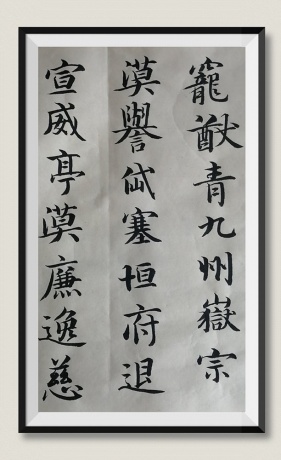 籠猷青九州嶽宗
漠譽岱塞恒府退
宣威亭漠廉逸慈